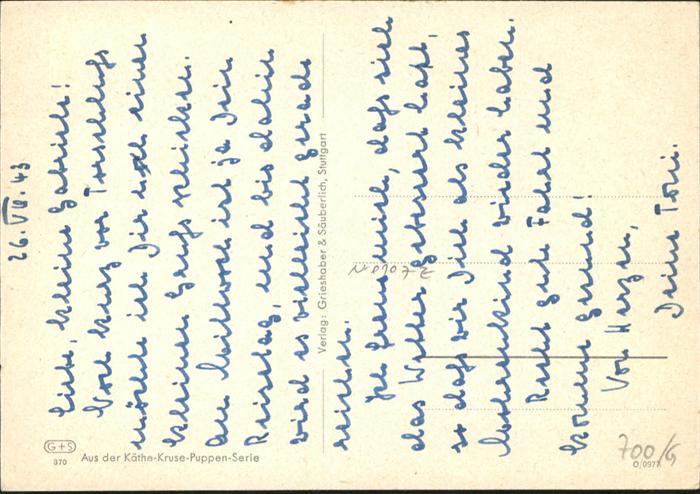 26. VII. 43
Liebe, kleine Gabriele!
Noch kurz vor Torschluss
möchte ich Dir noch einen
kleinen Gruss schicken.
Am Mittwoch ist ja Dein
Reisetag, und bis dahin
wird es vielleicht gerade
reichen.
Ich freue mich, dass sich
das Wetter gebessert hat,
so dass wir Dich als kleines
wieder haben.
Recht gute Fahrt und
komme gesund!
Von Herzen,
Deine Toni.
Verlag: Grieshaber & Säuberlich, Stuttgart
G+S
370 Aus der Käthe-Kruse-Puppen-Serie
700/G
O/0977